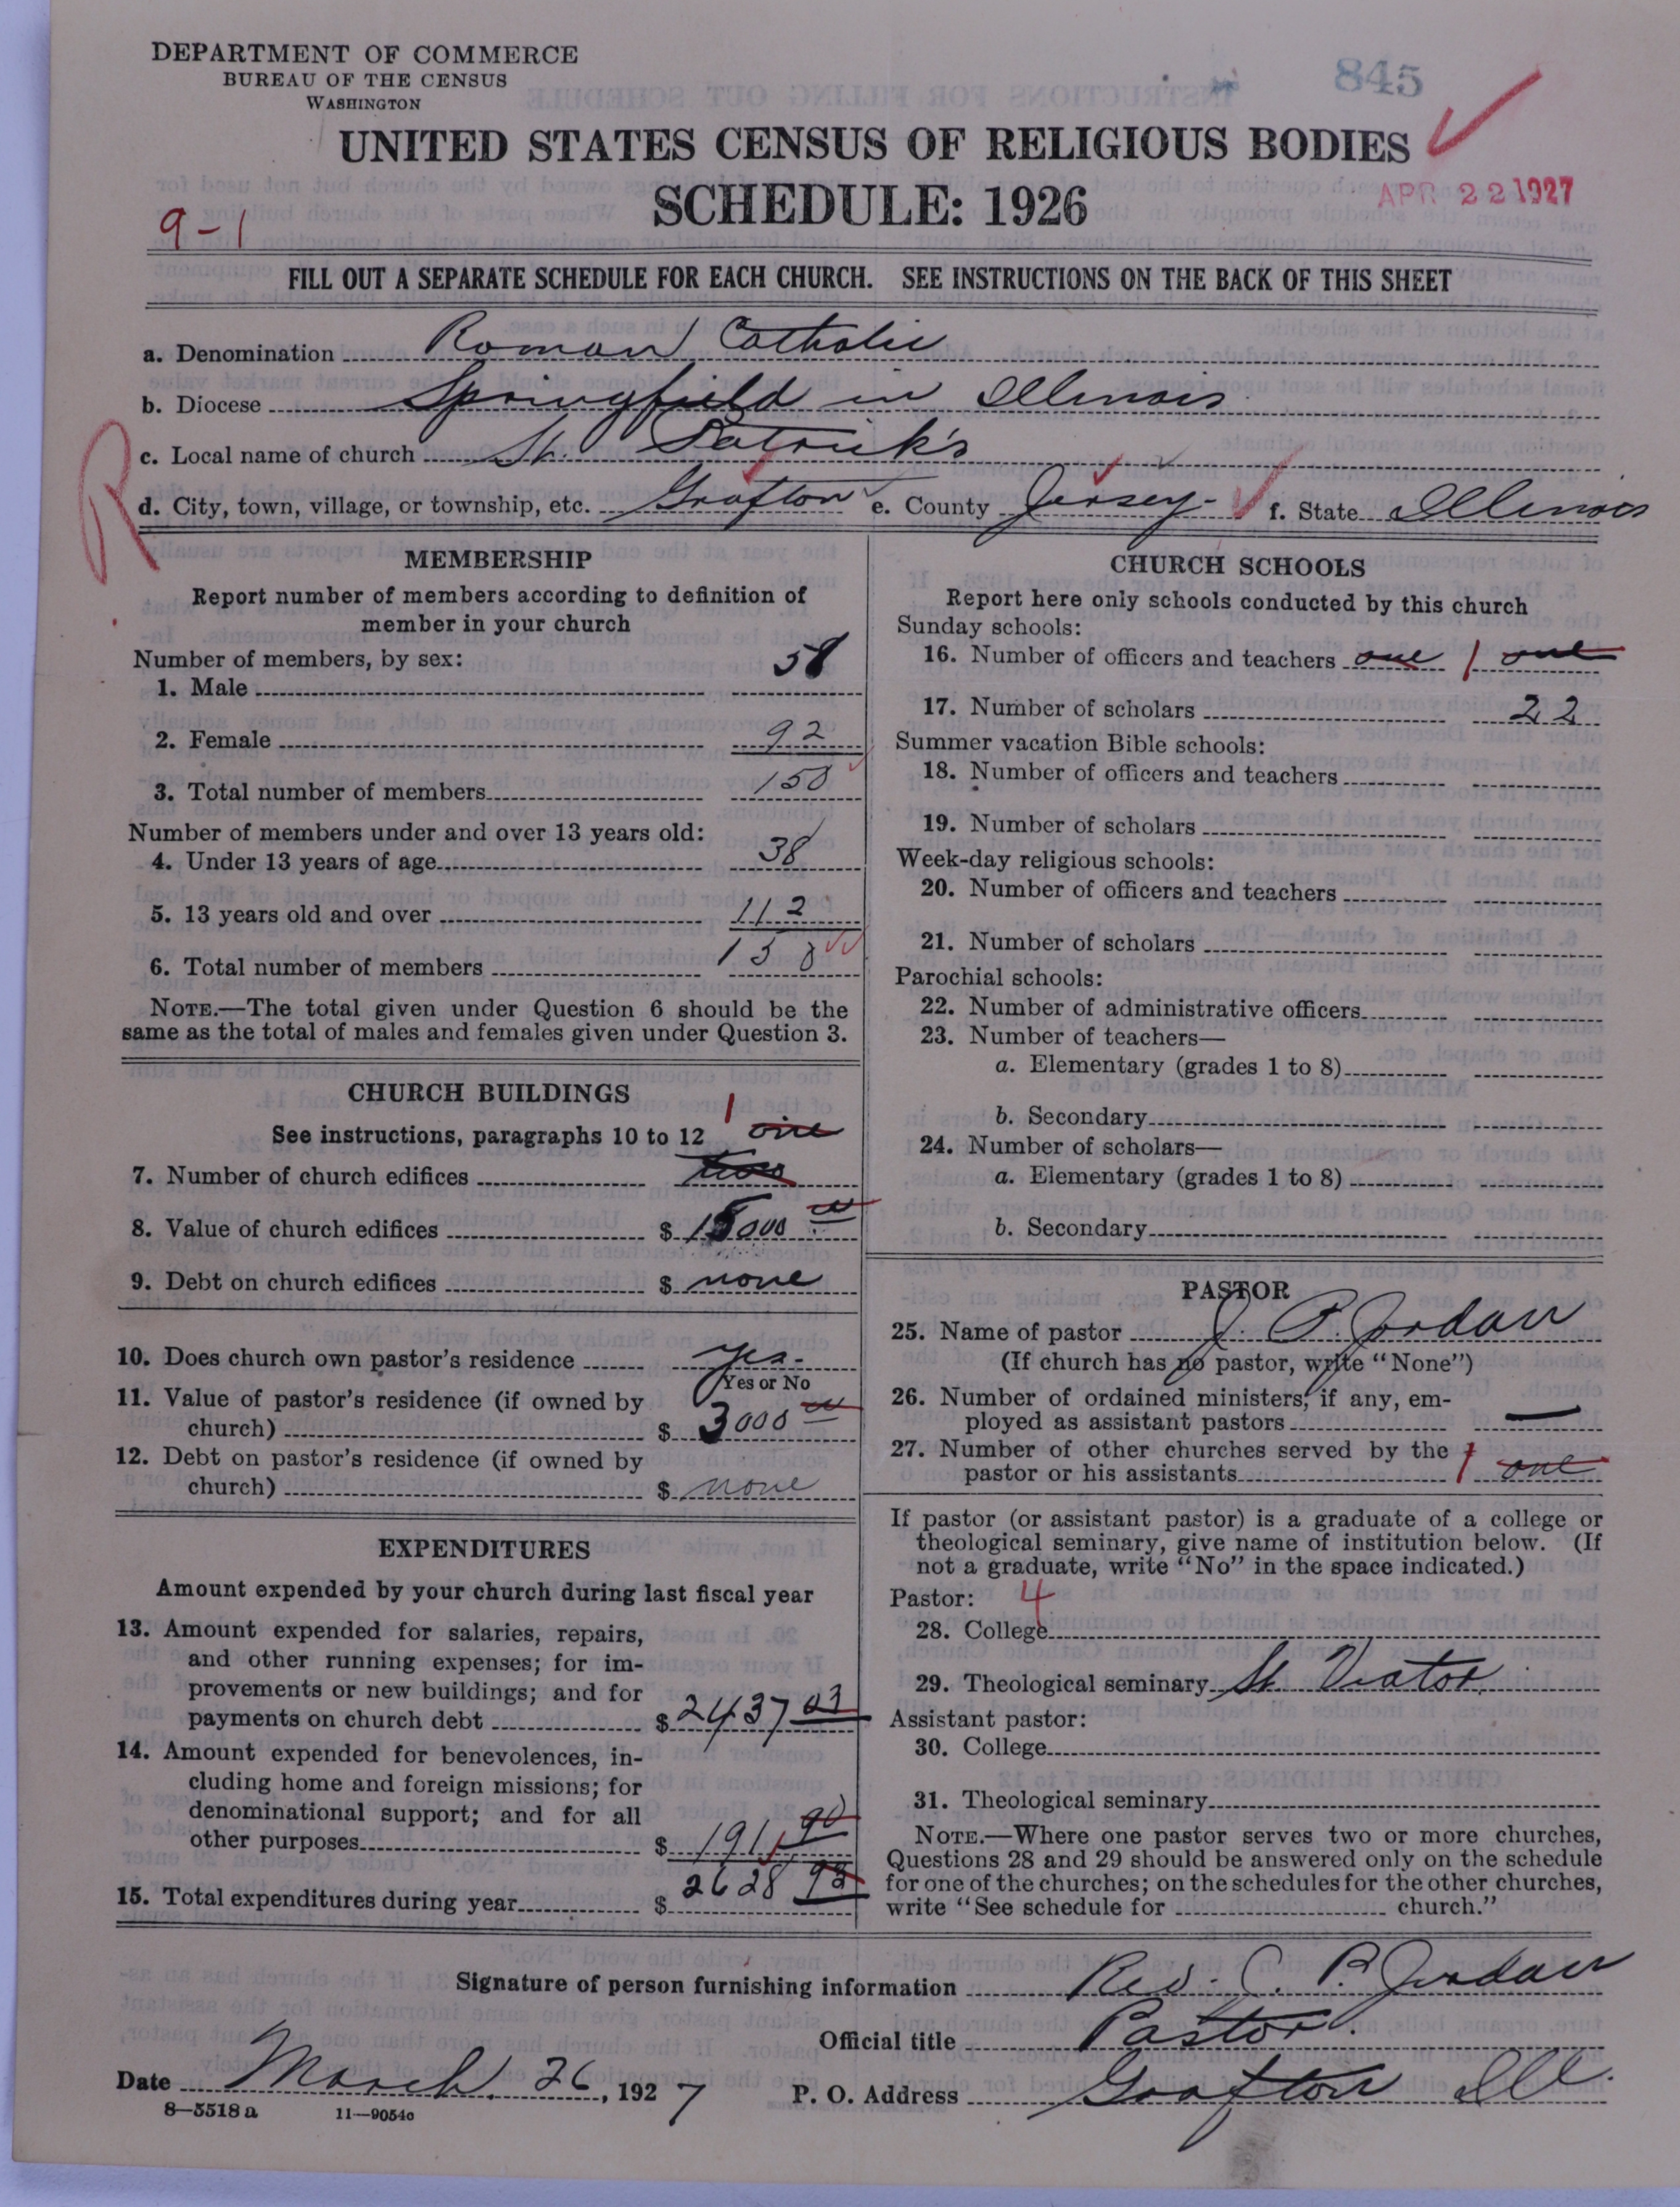 DEPARTMENT OF COMMERCE
BUREAU OF THE CENSUS
WASHINGTON
845
UNITED STATES CENSUS OF RELIGIOUS BODIES
SCHEDULE: 1926
APR 22 1927
9-1
FILL OUT A SEPARATE SCHEDULE FOR EACH CHURCH. SEE INSTRUCTIONS ON THE BACK OF THIS SHEET
a. Denomination Roman Catholic
b. Diocese Springfield in Illinois
c. Local name of church St. Patrick's
d. City, town, village, or township, etc. Grafton e. County Jersey- f. State Illinois
R
MEMBERSHIP
Report number of members according to definition of
member in your church
Number of members, by sex:
1. Male 58
2. Female 92
3. Total number of members 150
Number of members under and over 13 years old:
4. Under 13 years of age 38
5. 13 years old and over 112
6. Total number of members 150
NOTE.—The total given under Question 6 should be the
same as the total of males and females given under Question 3.
CHURCH BUILDINGS
See instructions, paragraphs 10 to 12 1 one
7. Number of church edifices two
8. Value of church edifices $ 15000 00
9. Debt on church edifices $ none
10. Does church own pastor's residence yes-
Yes or No
11. Value of pastor's residence (if owned by
church) $ 3000 00
12. Debt on pastor's residence (if owned by
church) $ none
EXPENDITURES
Amount expended by your church during last fiscal year
13. Amount expended for salaries, repairs,
and other running expenses; for im-
provements or new buildings; and for
payments on church debt $ 2437 03
14. Amount expended for benevolences, in-
cluding home and foreign missions; for
denominational support; and for all
other purposes $ 191 90
15. Total expenditures during year $ 2628 93
CHURCH SCHOOLS
Report here only schools conducted by this church
Sunday schools:
16. Number of officers and teachers one 1 one
17. Number of scholars 22
Summer vacation Bible schools:
18. Number of officers and teachers
19. Number of scholars
Week-day religious schools:
20. Number of officers and teachers
21. Number of scholars
Parochial schools:
22. Number of administrative officers
23. Number of teachers—
a. Elementary (grades 1 to 8)
b. Secondary
24. Number of scholars—
a. Elementary (grades 1 to 8)
b. Secondary
PASTOR
25. Name of pastor J. P. Jordan
(If church has no pastor, write "None")
26. Number of ordained ministers, if any, em-
ployed as assistant pastors —
27. Number of other churches served by the
pastor or his assistants 1 one
If pastor (or assistant pastor) is a graduate of a college or
theological seminary, give name of institution below. (If
not a graduate, write "No" in the space indicated.)
Pastor: 4
28. College
29. Theological seminary St. Viator
Assistant pastor:
30. College
31. Theological seminary
NOTE.—Where one pastor serves two or more churches,
Questions 28 and 29 should be answered only on the schedule
for one of the churches; on the schedules for the other churches,
write "See schedule for church."
Signature of person furnishing information Rev. J. P. Jordan
Official title Pastor.
Date March 26, 1927 P. O. Address Grafton Ill.
8-5518a 11-9054c